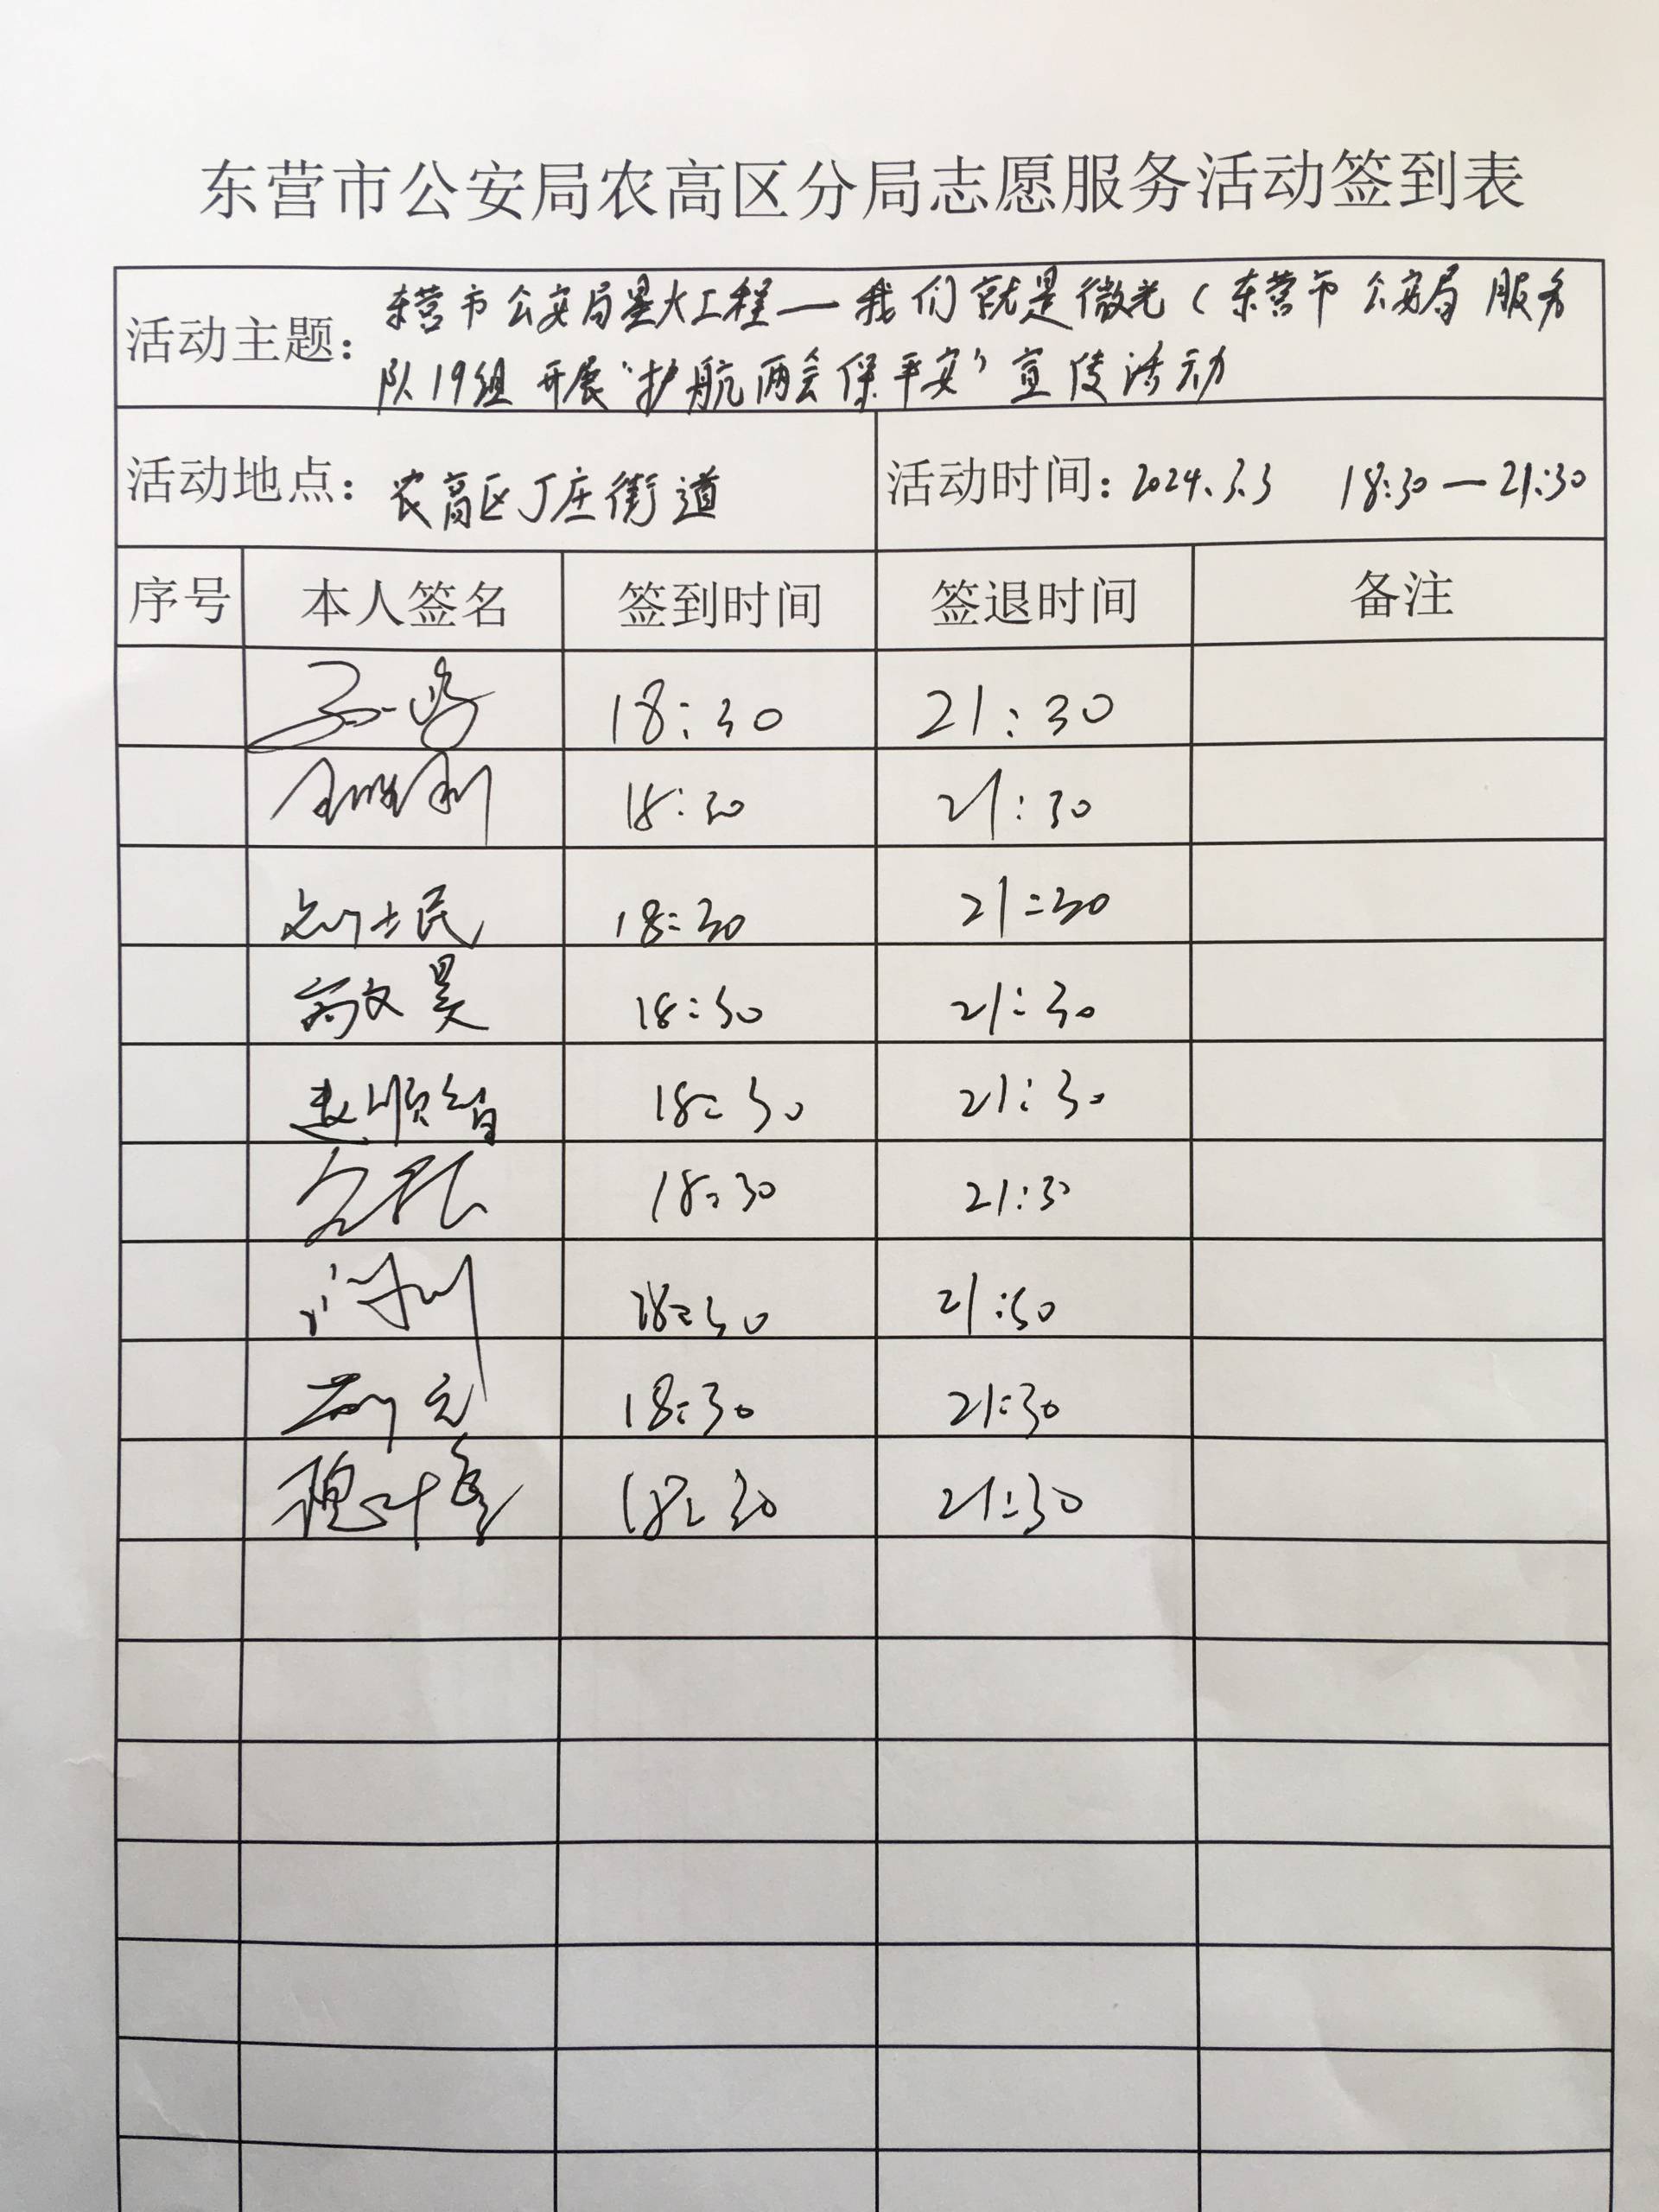 东营市公安局农高区分局志愿服务活动签到表
活动主题：东营市公安局星火工程—我们就是微光（东营市公安局服务
队19组开展“护航两会保平安”宣传活动
活动地点：农高区丁庄街道
活动时间：2024.3.3 18:30—21:30
序号 本人签名 签到时间 签退时间 备注
18:30 21:30
18:30 21:30
刘士民 18:30 21:30
高文昊 18:30 21:30
18:30 21:30
18:30 21:30
18:30 21:30
18:30 21:30
18:30 21:30